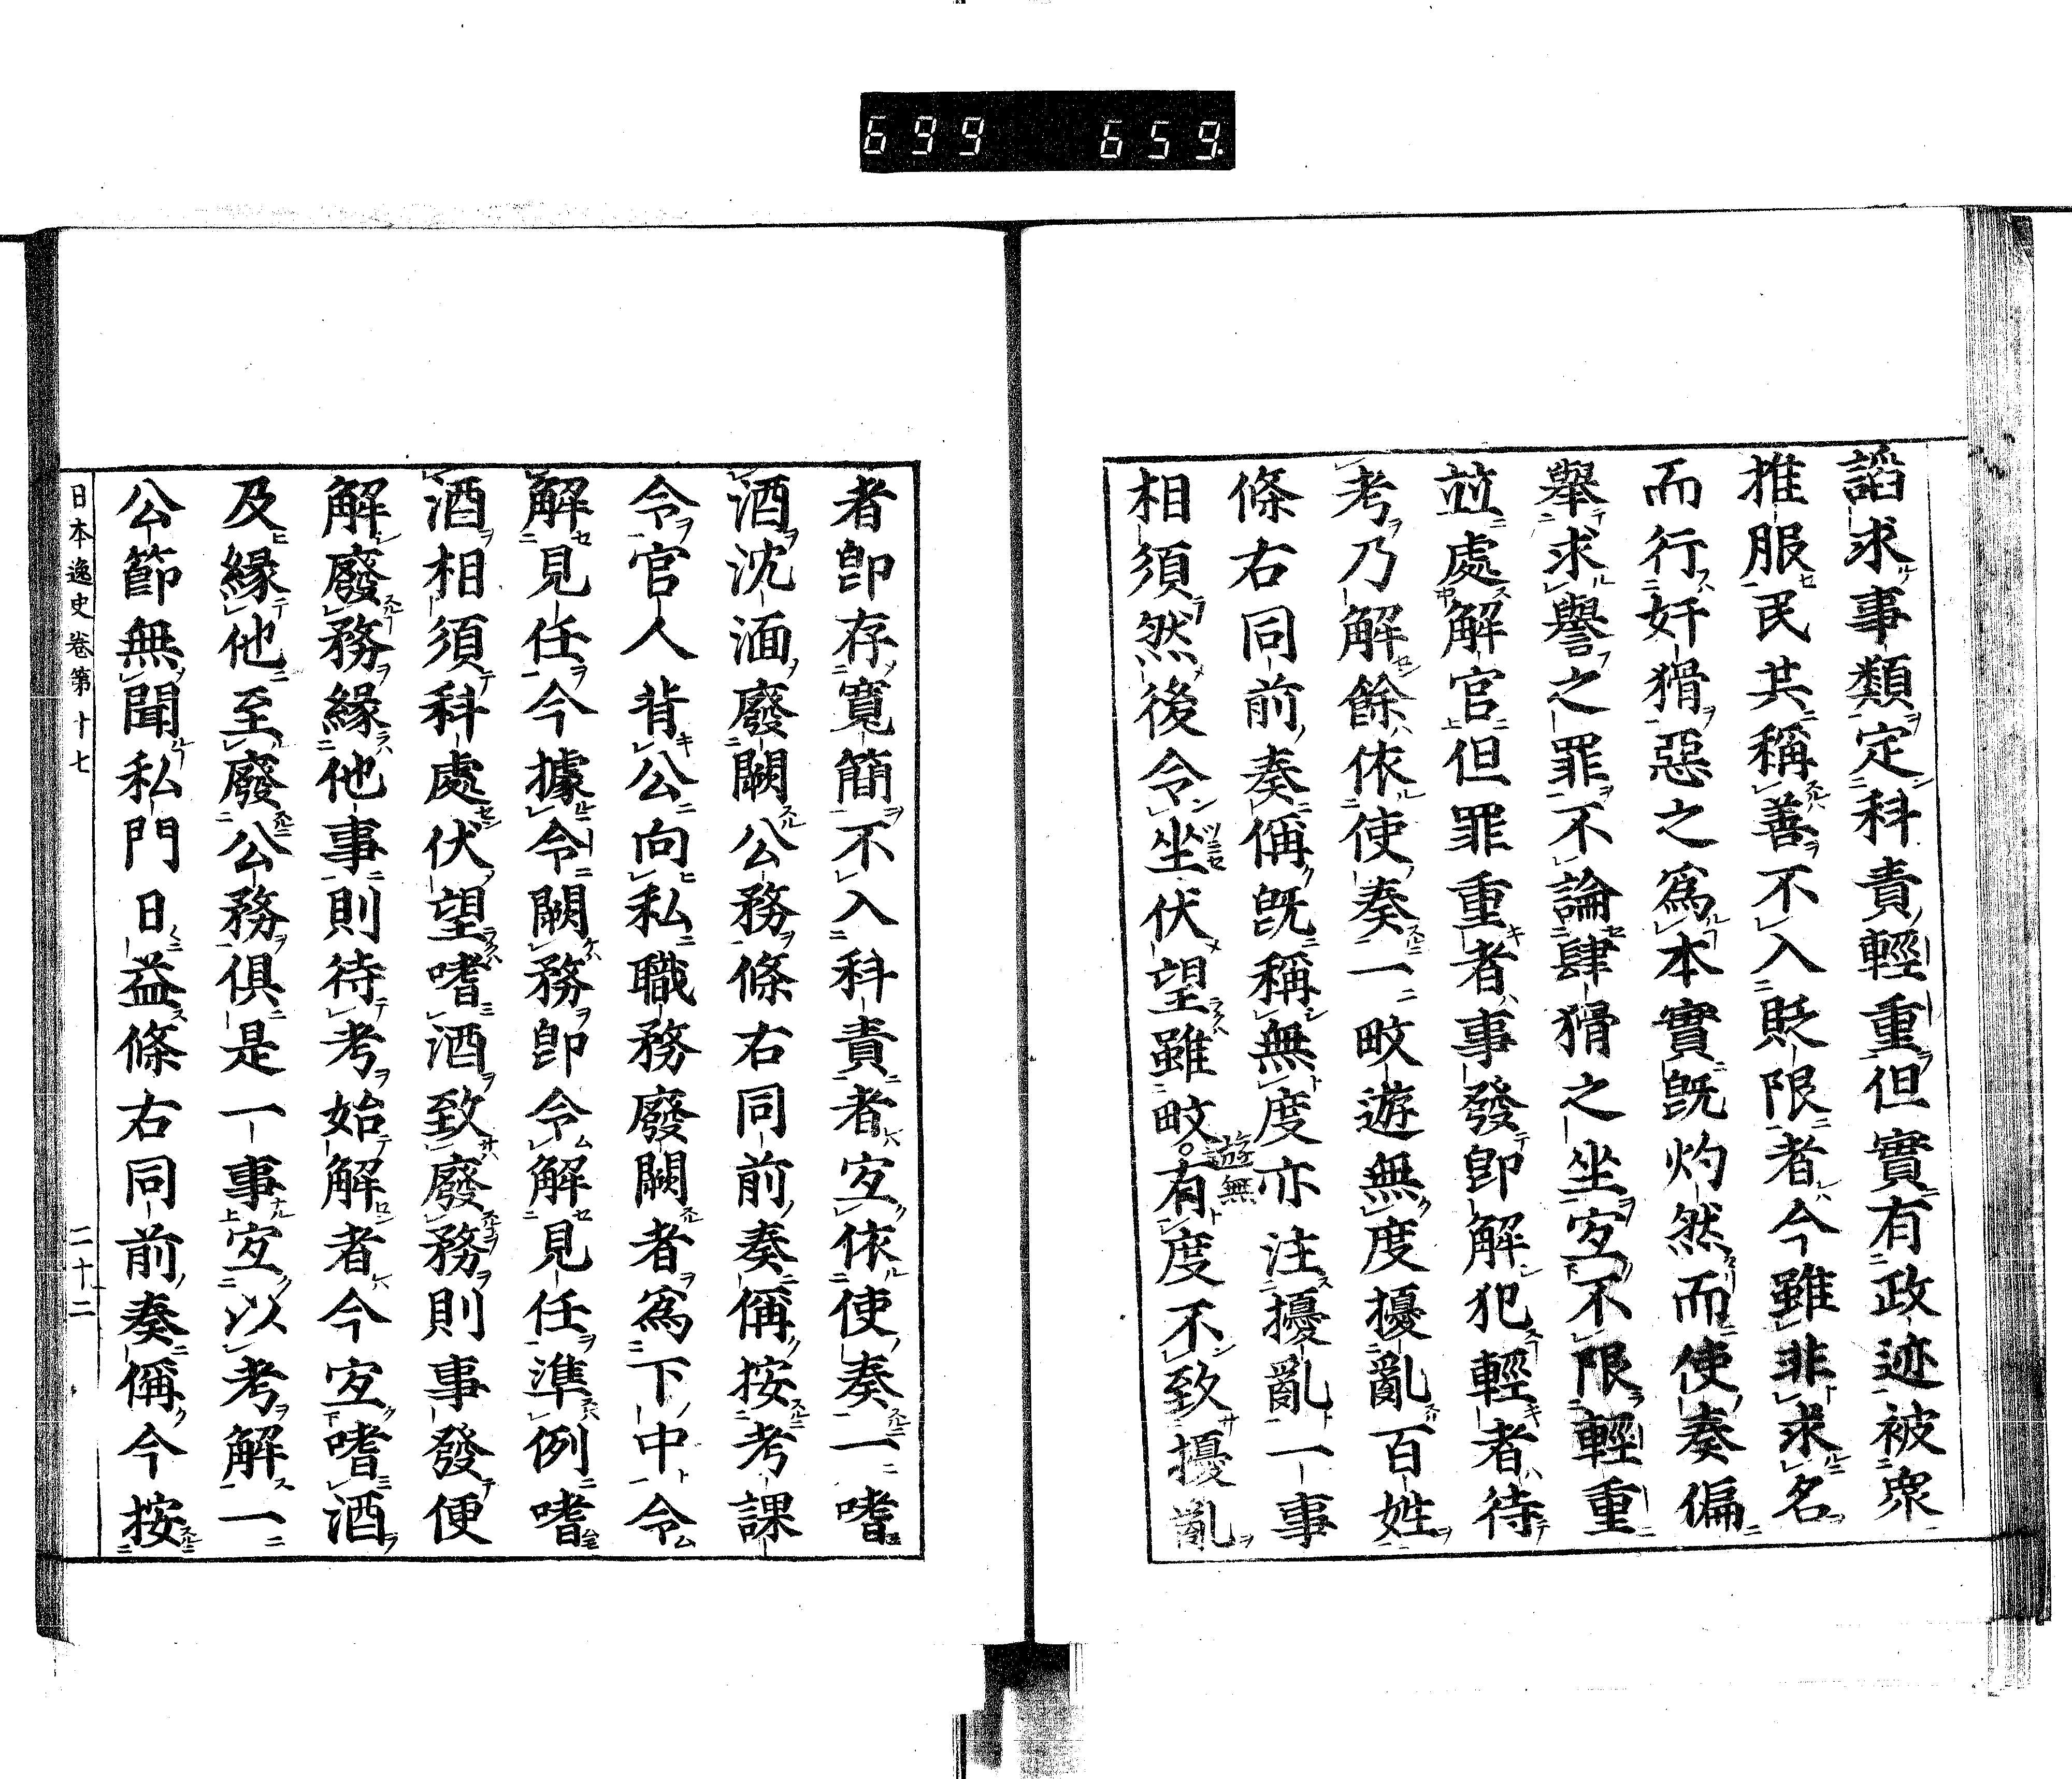 699 659
謟求事類定科責輕重但實有政迹被衆
推服民共稱善不入貶限者今雖非求名
而行奸猾惡之爲本實既灼然而使奏偏
舉求譽之罪不論肆猾之坐宐不限輕重
竝處解官但罪重者事發即解犯輕者待
考乃解餘依使奏一畋遊無度擾亂百姓
條右同前奏偁既稱無度亦注擾亂一事
相須然後令坐伏望雖畋。有度不致擾亂
遊無
者即存寬簡不入科責者宐依使奏一嗜
酒沈湎廢闕公務條右同前奏偁按考課
令官人背公向私職務廢闕者爲下中令
解見任今據令闕務即令解見任準例嗜
酒相須科處伏望嗜酒致廢務則事發便
解廢務緣他事則待考始解者今宐嗜酒
及緣他至廢公務俱是一事宐以考解一
公節無聞私門日益條右同前奏偁今按
日本逸史卷第十七 二十二